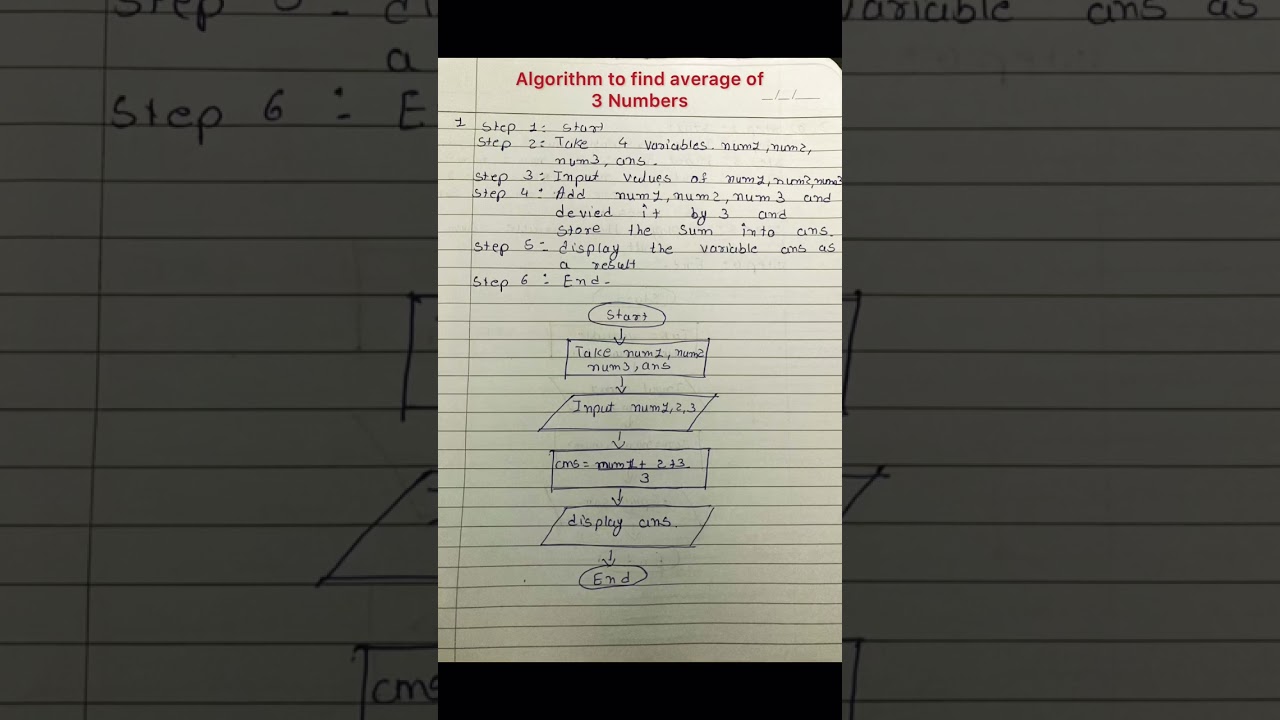 Step 5 - di
variable ans as
a
Step 6 : E
Algorithm to find average of
3 Numbers
_/_/_
1 Step 1: Start
Step 2: Take 4 variables num1, num2,
num3, ans.
Step 3: Input values of num1, num2, num3
Step 4: Add num1, num2, num3 and
devied it by 3 and
store the sum into ans.
Step 5 - display the variable ans as
a result
Step 6 : End -
Start
Take num1, num2
num3, ans
Input num1,2,3
ans = num1 + 2+3
3
display ans.
End